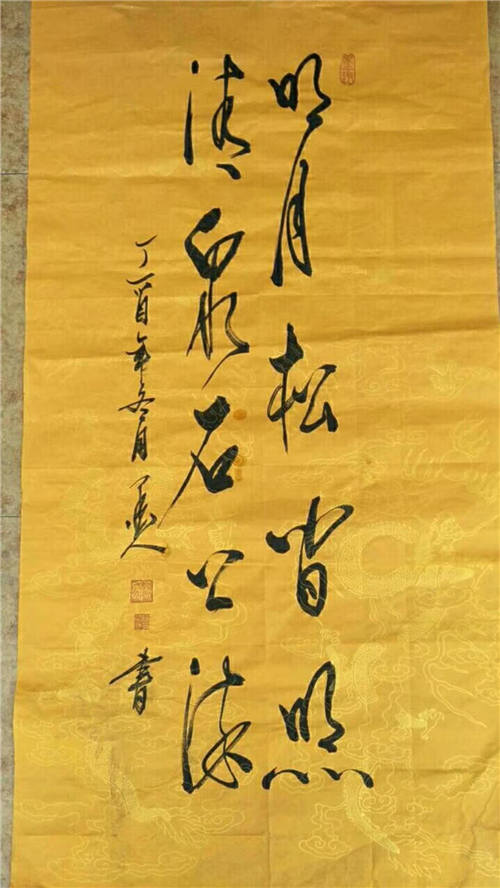 明月松间照
清泉石上流
丁酉年冬月
书